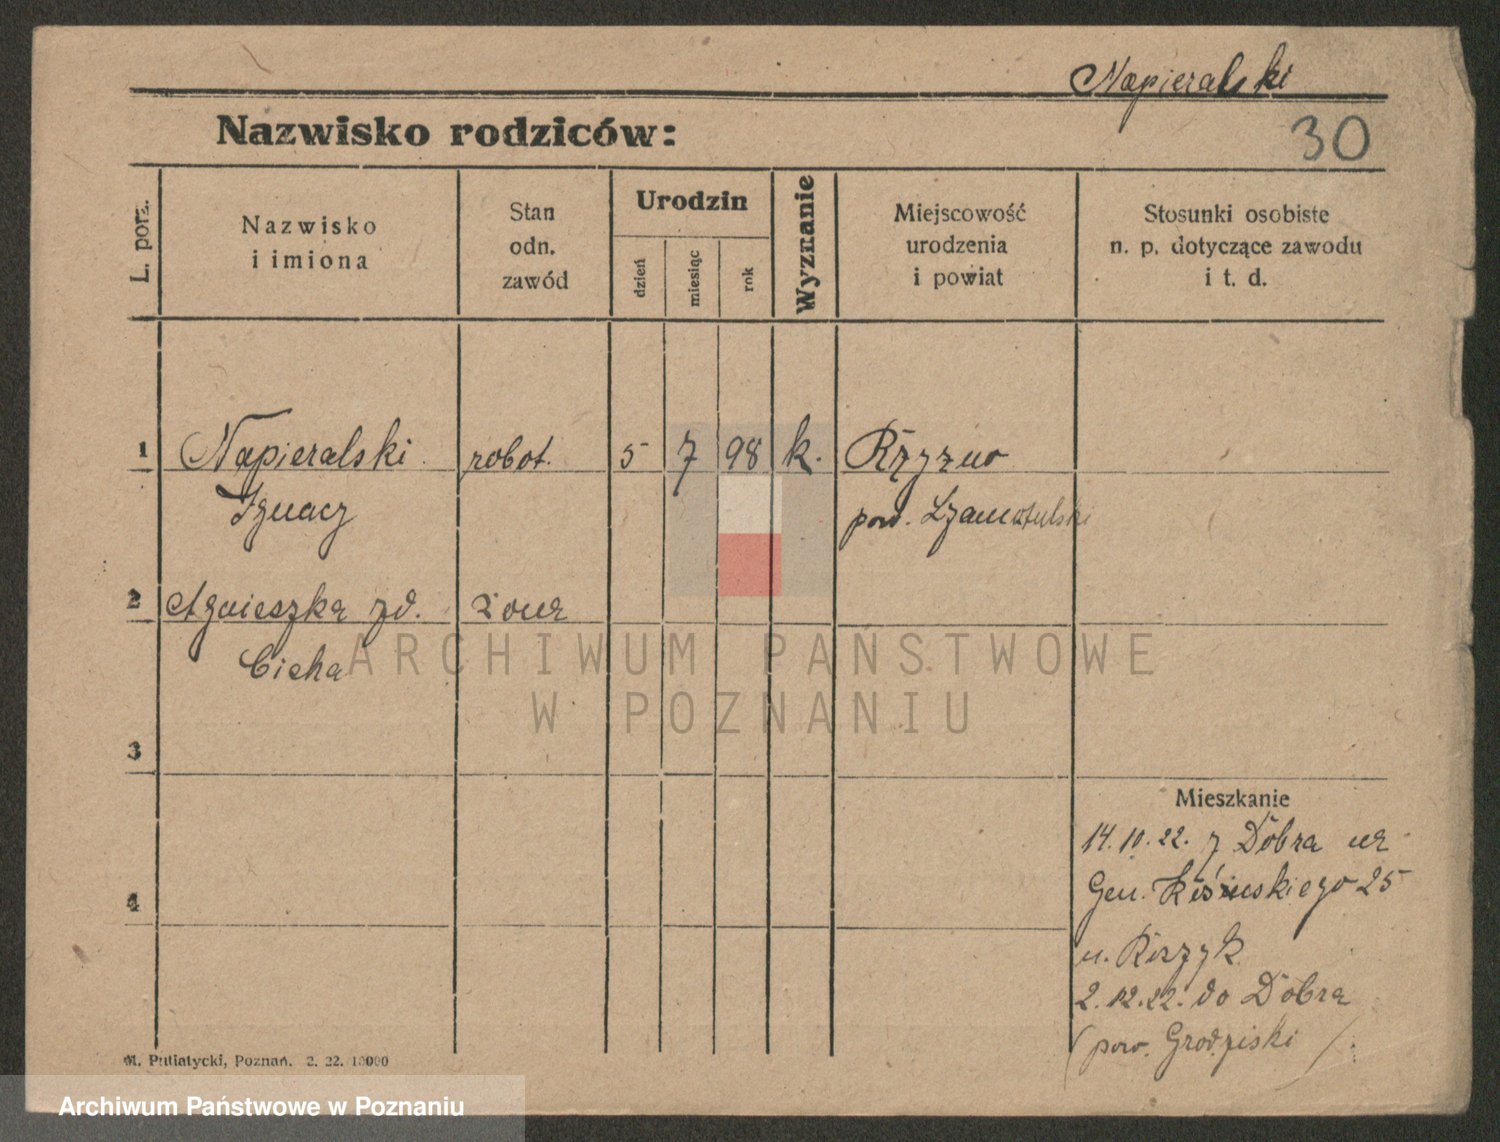 Napieralski
Nazwisko rodziców:
30
L. porz.
Nazwisko
i imiona
Stan
odn.
zawód
Urodzin
dzień
miesiąc
rok
Wyznanie
Miejscowość
urodzenia
i powiat
Stosunki osobiste
n. p. dotyczące zawodu
i t. d.
1 Napieralski robot. 5 7 98 k.
Ignacy pow. Szamotulski
2 Agnieszka zd. żona
Cicha
ARCHIWUM PAŃSTWOWE
W POZNANIU
3
Mieszkanie
14.10.22. z Dobra na
Gen. 25
4
u.
2.12.22. do Dobra
(pow. Grodziski)
M. Putiatycki, Poznań. 2. 22. 10000
Archiwum Państwowe w Poznaniu